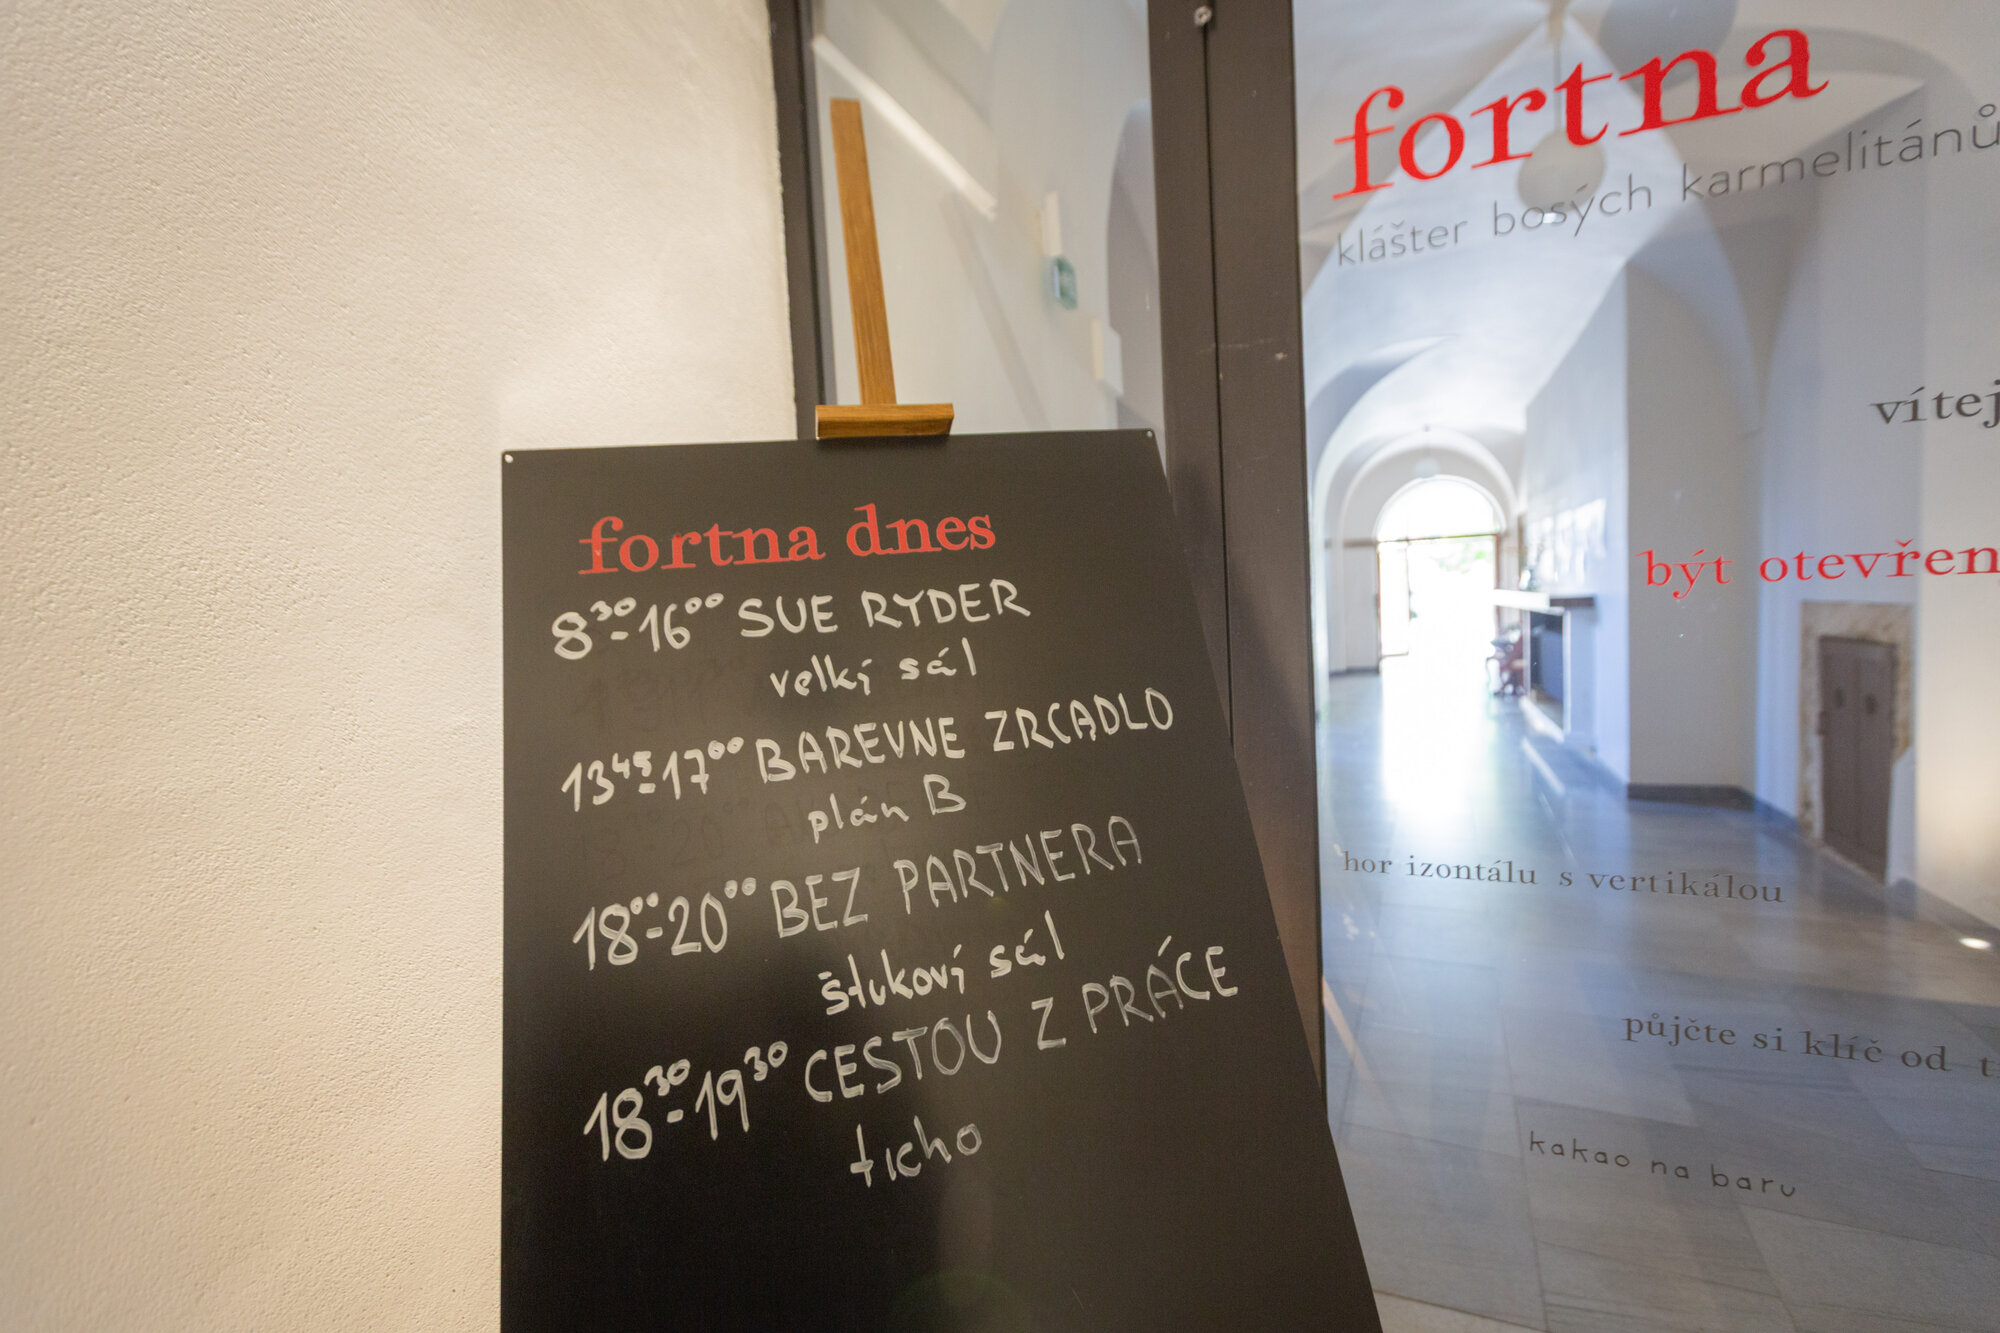 fortna dnes
8³⁰-16⁰⁰ SUE RYDER
velký sál
13⁴⁵-17⁰⁰ BAREVNE ZRCADLO
plán B
18⁰⁰-20⁰⁰ BEZ PARTNERA
štukový sál
18³⁰-19³⁰ CESTOU Z PRÁCE
ticho
fortna
klášter bosých karmelitánů
vítej
být otevřen
hor izontálu s vertikálou
půjčte si klíč od
kakao na baru